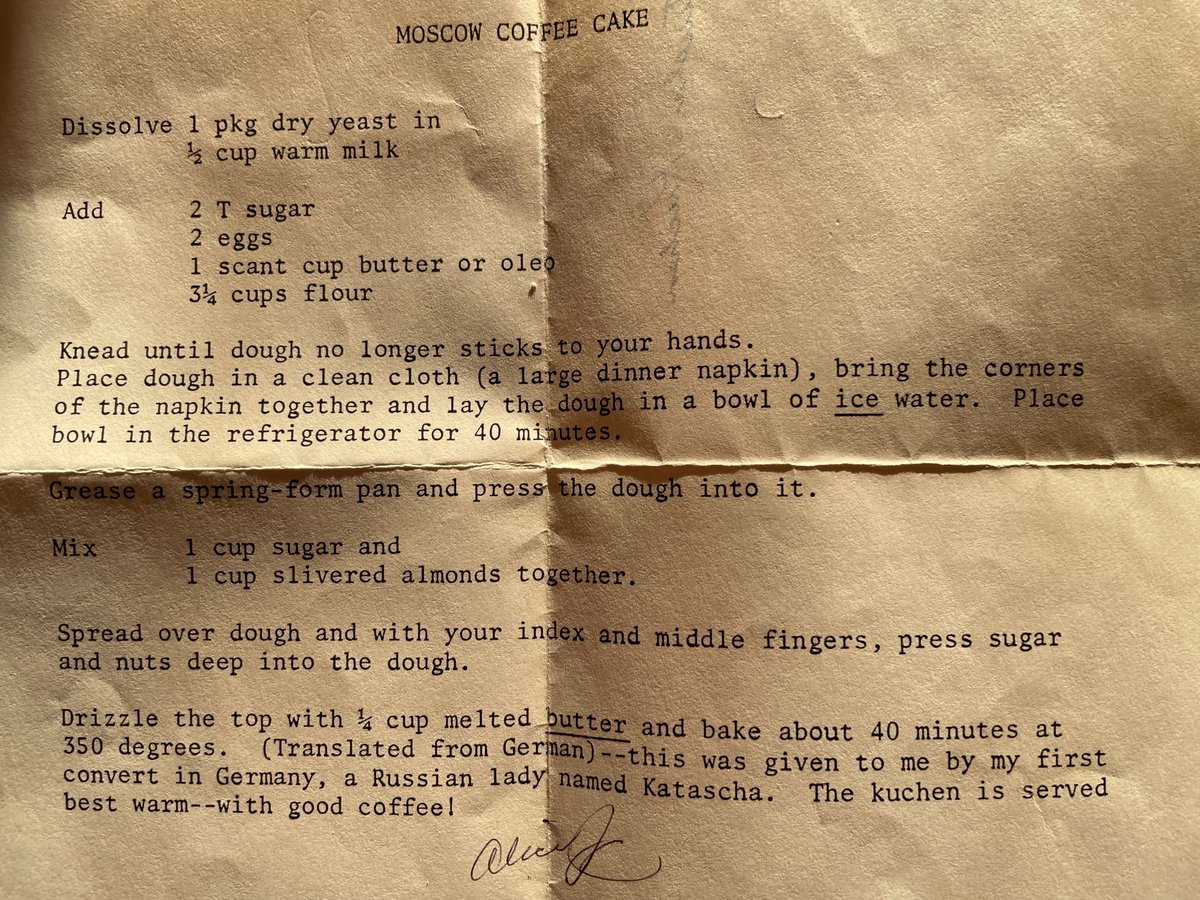 MOSCOW COFFEE CAKE
Dissolve 1 pkg dry yeast in
½ cup warm milk
Add 2 T sugar
2 eggs
1 scant cup butter or oleo
3¼ cups flour
Knead until dough no longer sticks to your hands.
Place dough in a clean cloth (a large dinner napkin), bring the corners
of the napkin together and lay the dough in a bowl of ice water. Place
bowl in the refrigerator for 40 minutes.
Grease a spring-form pan and press the dough into it.
Mix 1 cup sugar and
1 cup slivered almonds together.
Spread over dough and with your index and middle fingers, press sugar
and nuts deep into the dough.
Drizzle the top with ¼ cup melted butter and bake about 40 minutes at
350 degrees. (Translated from German)--this was given to me by my first
convert in Germany, a Russian lady named Katascha. The kuchen is served
best warm--with good coffee!